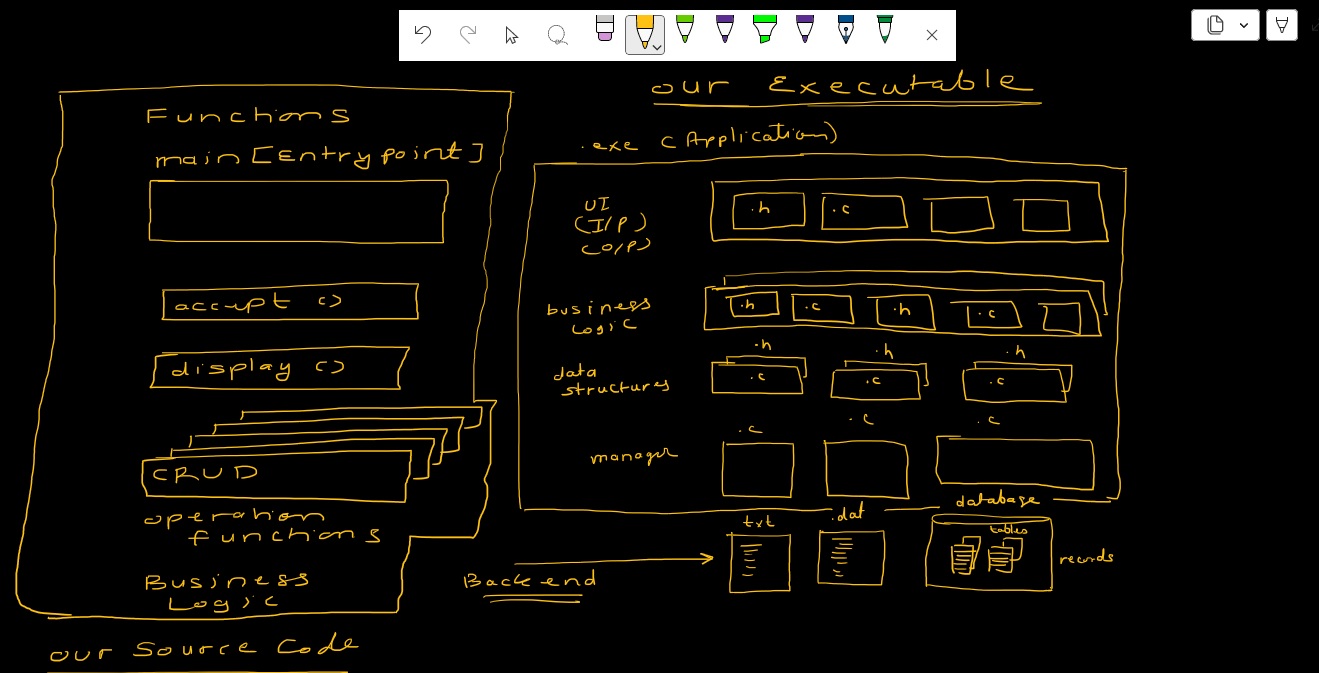 Functions
main [Entry point]
accept ()
display ()
CRUD
operation
functions
Business
Logic
our Source Code
our Executable
.exe (Application)
UI
(I/P)
(O/P)
.h .c
business
Logic
.h .c .h .c
data
structures
.h .h .h
.c .c .c
manager
.c .c .c
Backend
txt .dat database
tables
records